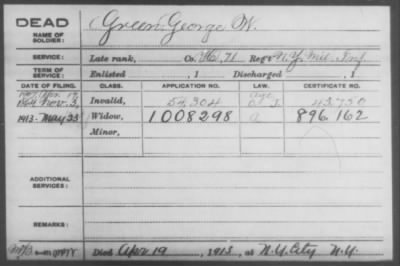 DEAD
NAME OF SOLDIER: Green, George W.
SERVICE: Late rank, Co. H, 71 Reg't N.Y. Mil. Inf.
TERM OF SERVICE: Enlisted , 1 Discharged , 1
DATE OF FILING. CLASS. APPLICATION NO. LAW. CERTIFICATE NO.
1907, Apr. 19 Age
1864, Nov. 3, Invalid, 54,304 O.L. I 43,750
1913-May 23 Widow, 1008298 896.162
Minor,
ADDITIONAL SERVICES:
REMARKS:
Died Apr 19 , 1913, at N.Y. City N.Y.